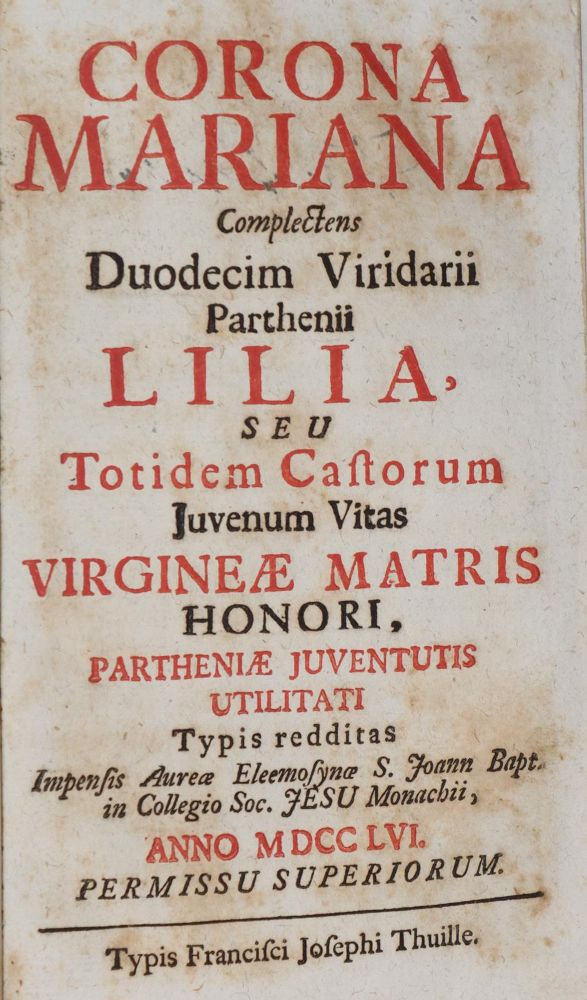 CORONA
MARIANA
Complectens
Duodecim Viridarii
Parthenii
LILIA,
SEU
Totidem Caſtorum
Juvenum Vitas
VIRGINEÆ MATRIS
HONORI,
PARTHENIÆ JUVENTUTIS
UTILITATI
Typis redditas
Impenſis Aureæ Eleemoſynæ S. Joann Bapt.
in Collegio Soc. JESU Monachii,
ANNO MDCCLVI.
PERMISSU SUPERIORUM.
Typis Franciſci Joſephi Thuille.